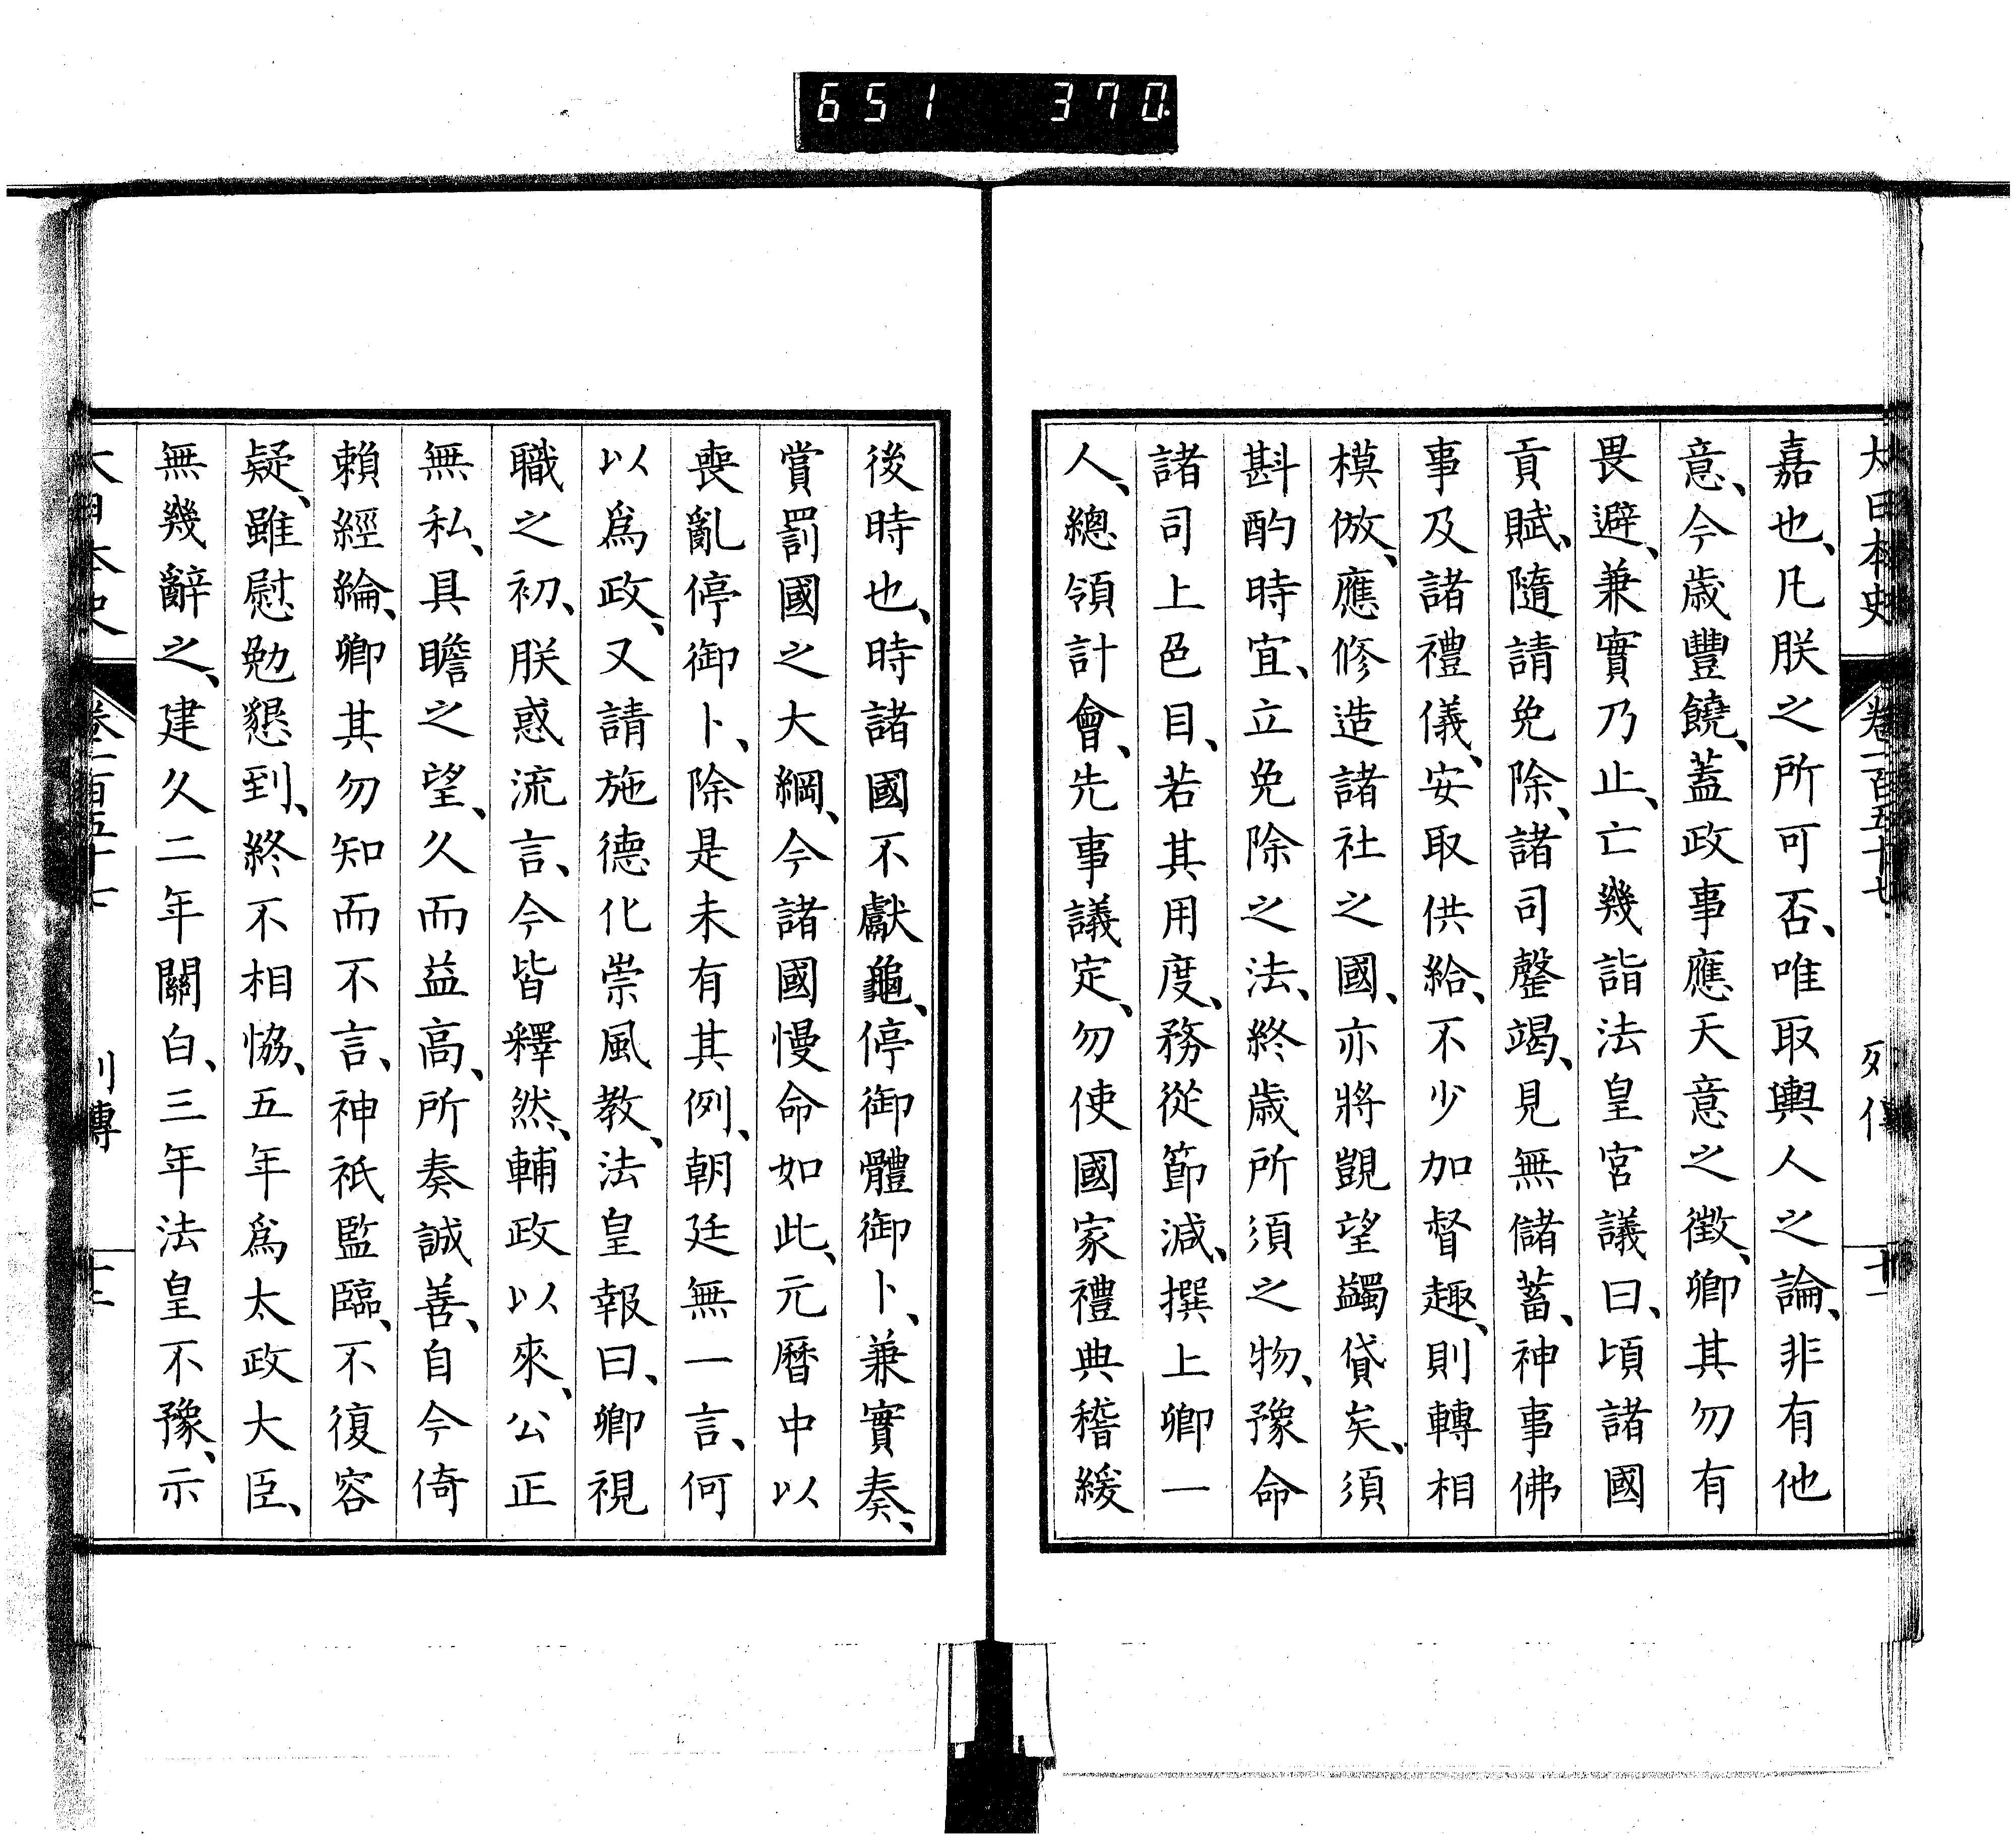 651 370
大日本史 卷一百五十七 列傳 十一
嘉也、凡朕之所可否、唯取輿人之論、非有他
意、今歲豐饒、蓋政事應天意之徵、卿其勿有
畏避、兼實乃止、亡幾詣法皇宮議曰、頃諸國
貢賦、隨請免除、諸司罄竭、見無儲蓄、神事佛
事及諸禮儀、安取供給、不少加督趣、則轉相
模倣、應修造諸社之國、亦將覬望蠲貸矣、須
斟酌時宜、立免除之法、終歲所須之物、豫命
諸司上色目、若其用度、務從節減、撰上卿一
人、總領計會、先事議定、勿使國家禮典稽緩
後時也、時諸國不獻龜、停御體御卜、兼實奏、
賞罰國之大綱、今諸國慢命如此、元曆中以
喪亂停御卜、除是未有其例、朝廷無一言、何
以爲政、又請施德化崇風教、法皇報曰、卿視
職之初、朕惑流言、今皆釋然、輔政以來、公正
無私、具瞻之望、久而益高、所奏誠善、自今倚
賴經綸、卿其勿知而不言、神祇監臨、不復容
疑、雖慰勉懇到、終不相協、五年爲太政大臣、
無幾辭之、建久二年關白、三年法皇不豫、示
大日本史 卷一百五十七 列傳